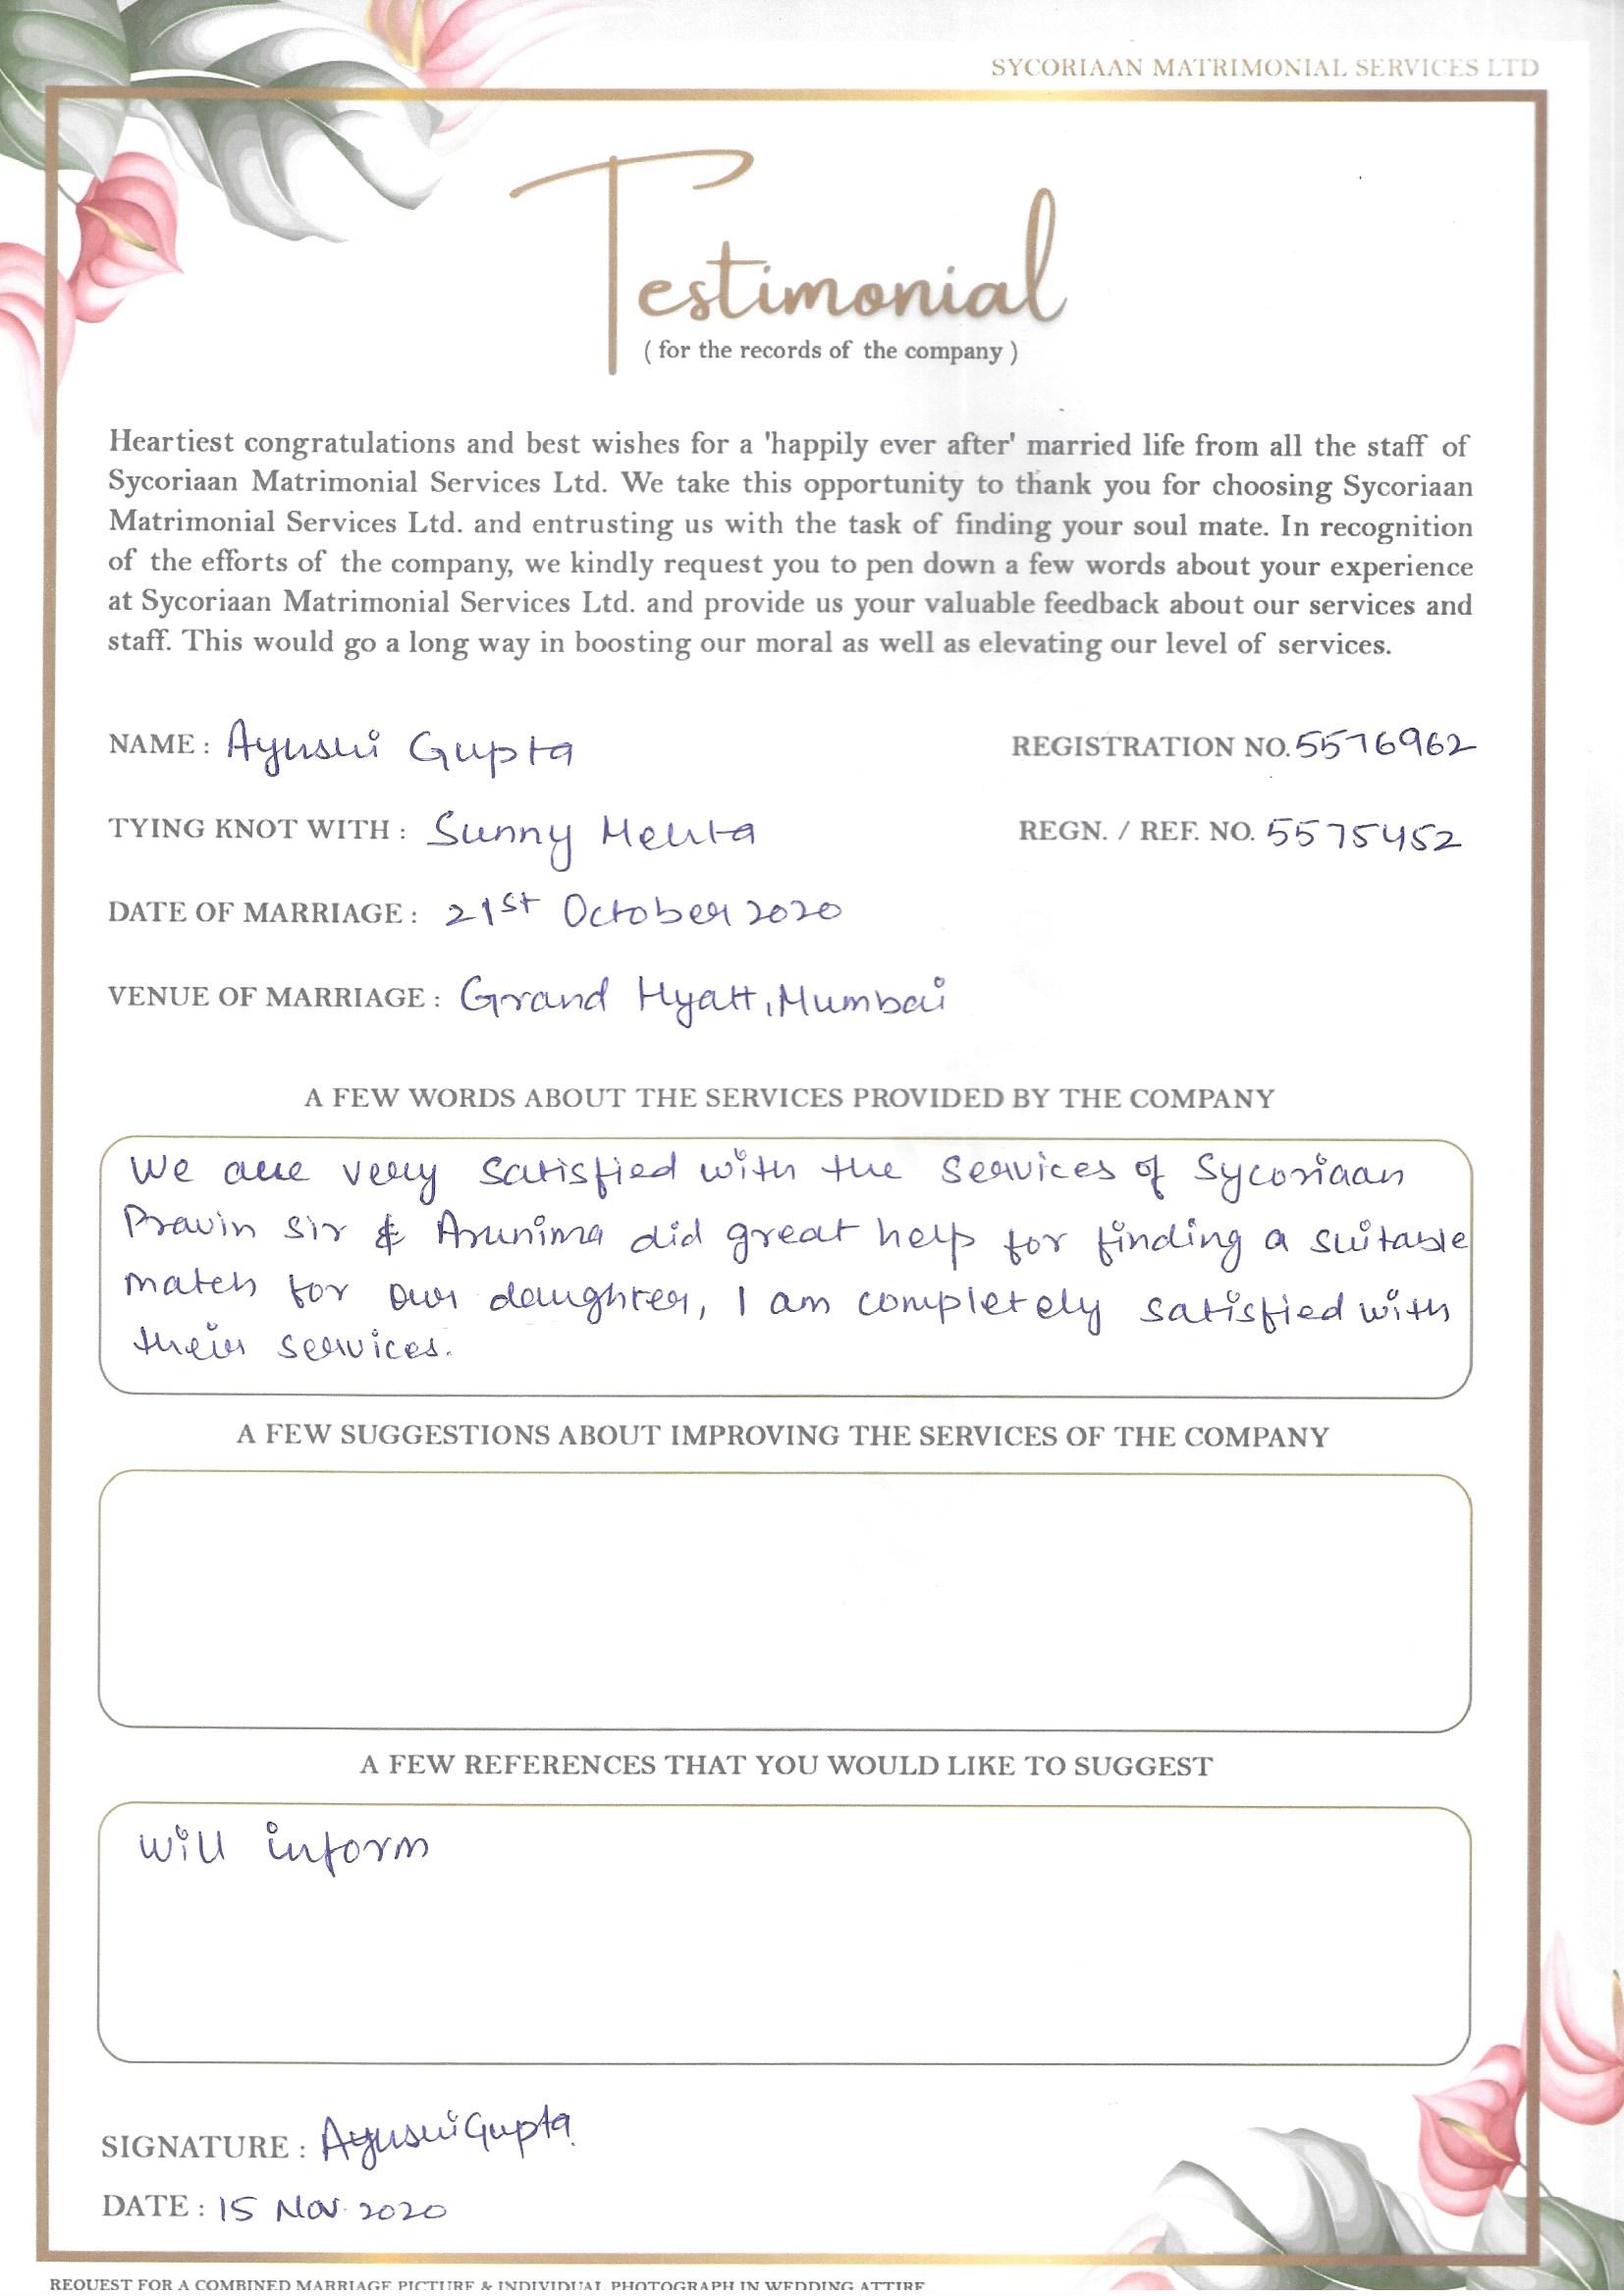 SYCORIAAN MATRIMONIAL SERVICES LTD
Testimonial
( for the records of the company )
Heartiest congratulations and best wishes for a 'happily ever after' married life from all the staff of
Sycoriaan Matrimonial Services Ltd. We take this opportunity to thank you for choosing Sycoriaan
Matrimonial Services Ltd. and entrusting us with the task of finding your soul mate. In recognition
of the efforts of the company, we kindly request you to pen down a few words about your experience
at Sycoriaan Matrimonial Services Ltd. and provide us your valuable feedback about our services and
staff. This would go a long way in boosting our moral as well as elevating our level of services.
NAME : Ayushi Gupta REGISTRATION NO. 5576962
TYING KNOT WITH : Sunny Mehta REGN. / REF. NO. 5575452
DATE OF MARRIAGE : 21st October 2020
VENUE OF MARRIAGE : Grand Hyatt, Mumbai
A FEW WORDS ABOUT THE SERVICES PROVIDED BY THE COMPANY
We are very satisfied with the services of Sycoriaan
Pravin sir & Arunima did great help for finding a suitable
match for our daughter, I am completely satisfied with
their services.
A FEW SUGGESTIONS ABOUT IMPROVING THE SERVICES OF THE COMPANY
A FEW REFERENCES THAT YOU WOULD LIKE TO SUGGEST
will inform
SIGNATURE : Ayushi Gupta
DATE : 15 Nov. 2020
REQUEST FOR A COMBINED MARRIAGE PICTURE & INDIVIDUAL PHOTOGRAPH IN WEDDING ATTIRE